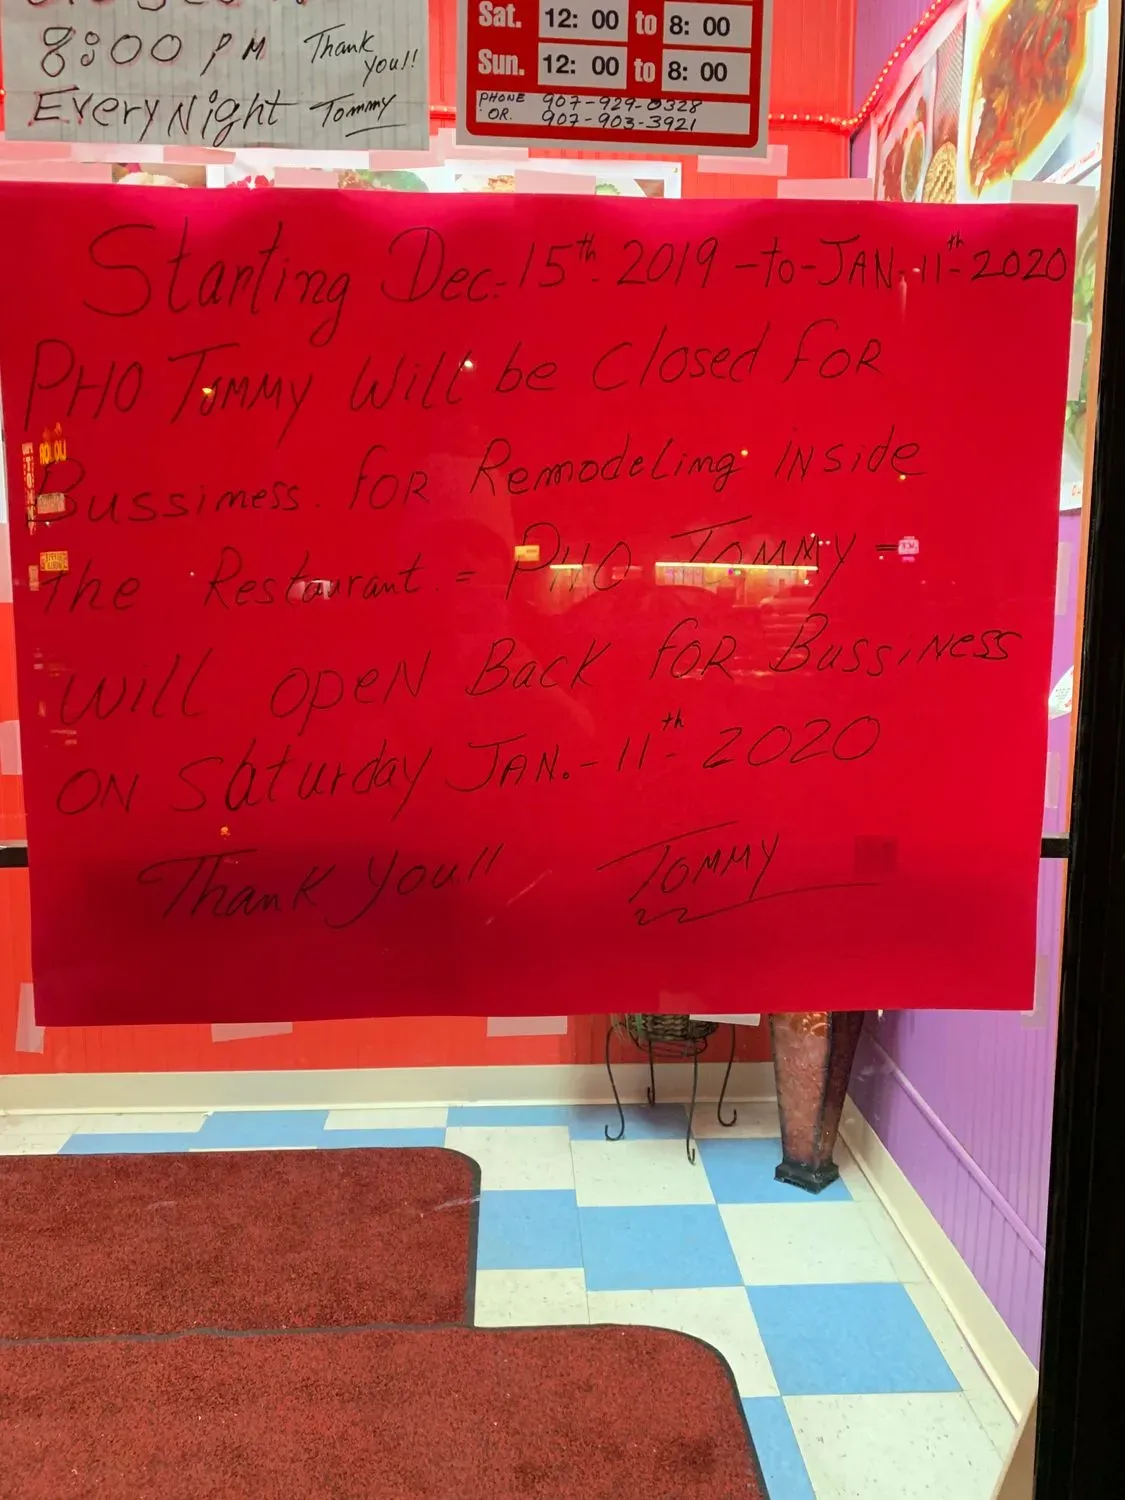 8:00 PM Thank you!!
Every Night Tommy
Sat. 12: 00 to 8: 00
Sun. 12: 00 to 8: 00
PHONE 907-929-0328
OR. 907-903-3921
Starting Dec. 15th 2019 - to - JAN. 11th 2020
PHO TOMMY Will be Closed FOR
Bussiness. FOR Remodeling INSide
the Restaurant = PHO TOMMY =
Will OPEN BACK FOR BussiNess
ON Saturday JAN. - 11th 2020
Thank You!! TOMMY